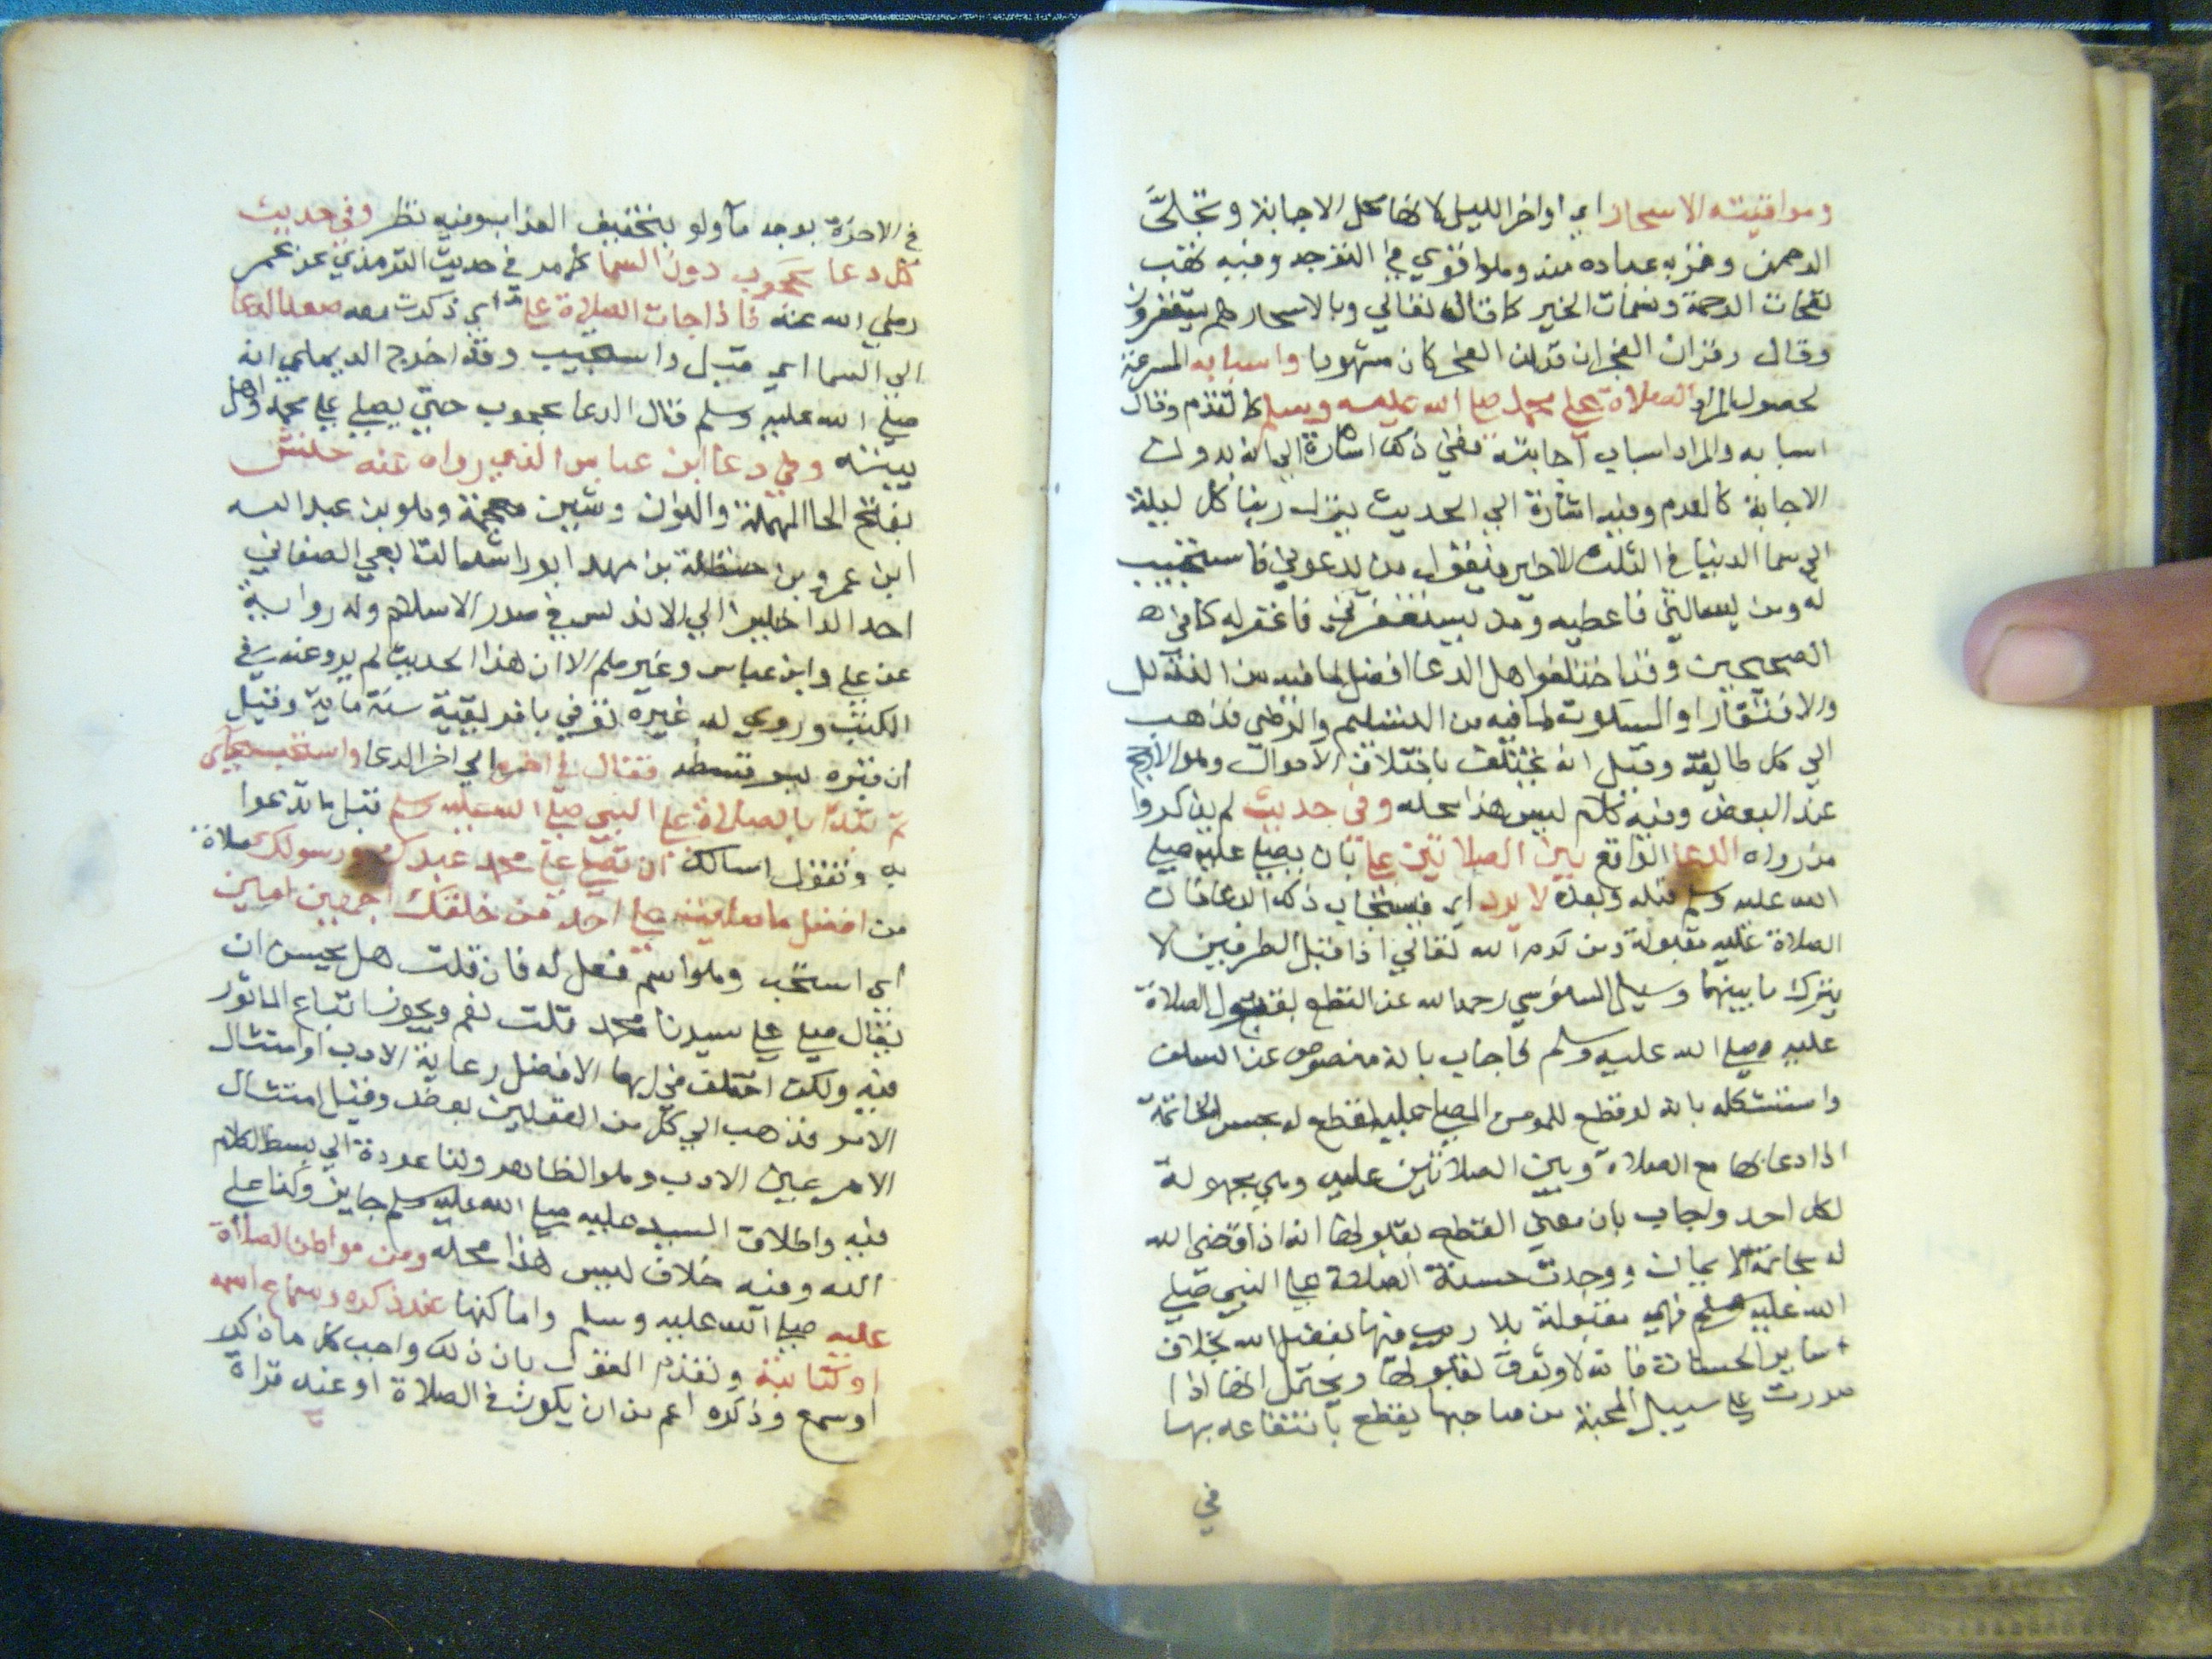 ومواقيته الاسحار اي اواخر الليل لانها محل الاجابة وتجلى
الرحمن وقربه عباده منه وهو اقوي في التوجه وفيه تهب
نفحات الرحمة ونسمات الخير كما قال تعالي وبالاسحار هم يستغفرون
وقال وقران الفجر ان قران الفجر كان مشهودا واسبابه المسرعة
لحصول المراد الصلاة علي محمد صلي الله عليه وسلم كما تقدم وقال
اسبابه والمراد اسباب اجابته ففي ذلك اشارة الي انه بدون
الاجابة كالعدم وفيه اشارة الي الحديث ينزل ربنا كل ليلة
الي سما الدنيا في الثلث الاخير فيقول من يدعوني فاستجيب
له ومن يسالني فاعطيه ومن يستغفرني فاغفر له كما في
الصحيحين وقد اختلفوا هل الدعا افضل لما فيه من التذلل
والافتقار او السكوت لما فيه من التسليم والرضي فذهب
الي كل طايفة وقيل انه يختلف باختلاف الاحوال وهو الارجح
عند البعض وفيه كلام ليس هذا محله وفي حديث لم يذكروا
من رواه الدعا الواقع بين الصلاتين علي بان يصلي عليه صلي
الله عليه وسلم قبله وبعده لا يرد اي فيستجاب ذلك الدعا فان
الصلاة عليه مقبولة ومن كرم الله تعالي اذا قبل الطرفين لا
يترك ما بينهما وسيل السنوسي رحمه الله عن القطع بقبول الصلاة
عليه صلي الله عليه وسلم فاجاب بانه منصوص عن السلف
واستشكله بانه لو قطع للمومن المصلي عليه لقطع له بحسن الخاتمة
اذا دعا بها مع الصلاة وبين الصلاتين عليه وهي مجهولة
لكل احد واجاب بان معني القطع بقبولها انه اذا قضي الله
له بخاتمة الايمان ووجدت حسنة الصلاة علي النبي صلي
الله عليه وسلم فهي مقبولة بلا ريب فيها بفضل الله بخلاف
ساير الحسنات فانه لا وثوق بقبولها ويحتمل انها اذا
صدرت علي سبيل المحبة من صاحبها يقطع بانتفاعه بها
في
في الاخرة بوجه ما ولو بتخفيف العذاب وفيه نظر وفي حديث
كل دعا محجوب دون السما كما مر في حديث الترمذي عن عمر
رضي الله عنه فاذا جات الصلاة علي اي ذكرت معه صعد الدعا
الي السما اي قبل واستجيب وقد اخرج الديلمي انه
صلي الله عليه وسلم قال الدعا محجوب حتي يصلي علي محمد واهل
بيته وفي دعا ابن عباس الذي رواه عنه حنش
بفتح الحا المهملة والنون وشين معجمة وهو بن عبد الله
ابن عمرو بن حنظلة بن مهد ابو راشد التابعي الصنعاني
احد الداخلين الي الاندلس في صدر الاسلام وله رواية
عن علي وابن عباس وغيرهم الا ان هذا الحديث لم يرو عنه في
الكتب وروي له غيره توفي بافريقية سنة ماية وقيل
ان قبره بسرقسطة فقال في اخره اي اخر الدعا واستجب دعاي
ثم تبدا بالصلاة علي النبي صلي الله عليه وسلم قبل ما تدعوا
به وتقول اسالك ان تصلي علي محمد عبدك ورسولك صلاة
من افضل ما صليت علي احد من خلقك اجمعين امين
اي استجب وهو اسم فعل له فان قلت هل يحسن ان
يقال صلي علي سيدنا محمد قلت نعم ويجوز اتباع الماثور
فيه ولكن اختلف في ايهما الافضل رعاية الادب او امتثال
الامر فذهب الي كل من القولين بعض وقيل امتثال
الامر عين الادب وهو الظاهر ولنا عودة الي بسط الكلام
فيه واطلاق السيد عليه صلي الله عليه وسلم جايز وكذا علي
الله وفيه خلاف ليس هذا محله ومن مواطن الصلاة
عليه صلي الله عليه وسلم واماكنها عند ذكره وسماع اسمه
او كتابته وتقدم القول بان ذلك واجب كل ما ذكر
او سمع وذكره اعم من ان يكون في الصلاة او عند قراة